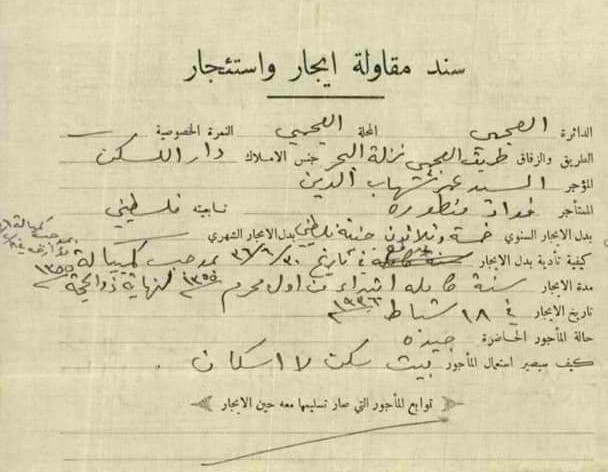 سند مقاولة ايجار واستئجار
الدائرة العجمي المحلة العجمي النمرة الخصوصية
الطريق والزقاق طريق العجمي نزلة البحر جنس الاملاك دار للسكن
المؤجر السيد عمر شهاب الدين
المستأجر فؤاد منصوره تابعيته فلسطيني
بدل الايجار السنوي خمسة وثلاثون جنيه فلسطيني بدل الايجار الشهري
كيفية تأدية بدل الايجار في تاريخ ٣٠/٦/٣٦ بموجب كمبيالة
مدة الايجار سنة كامله ابتداء من اول محرم ١٣٥٥ لنهاية ذو الحجة ١٣٥٥
تاريخ الايجار في ١٨ شباط ١٩٣٦
حالة المأجور الحاضرة جيده
كيف سيصير استعمال المأجور بيت سكن لا اسكان
توابع المأجور التي صار تسليمها معه حين الايجار